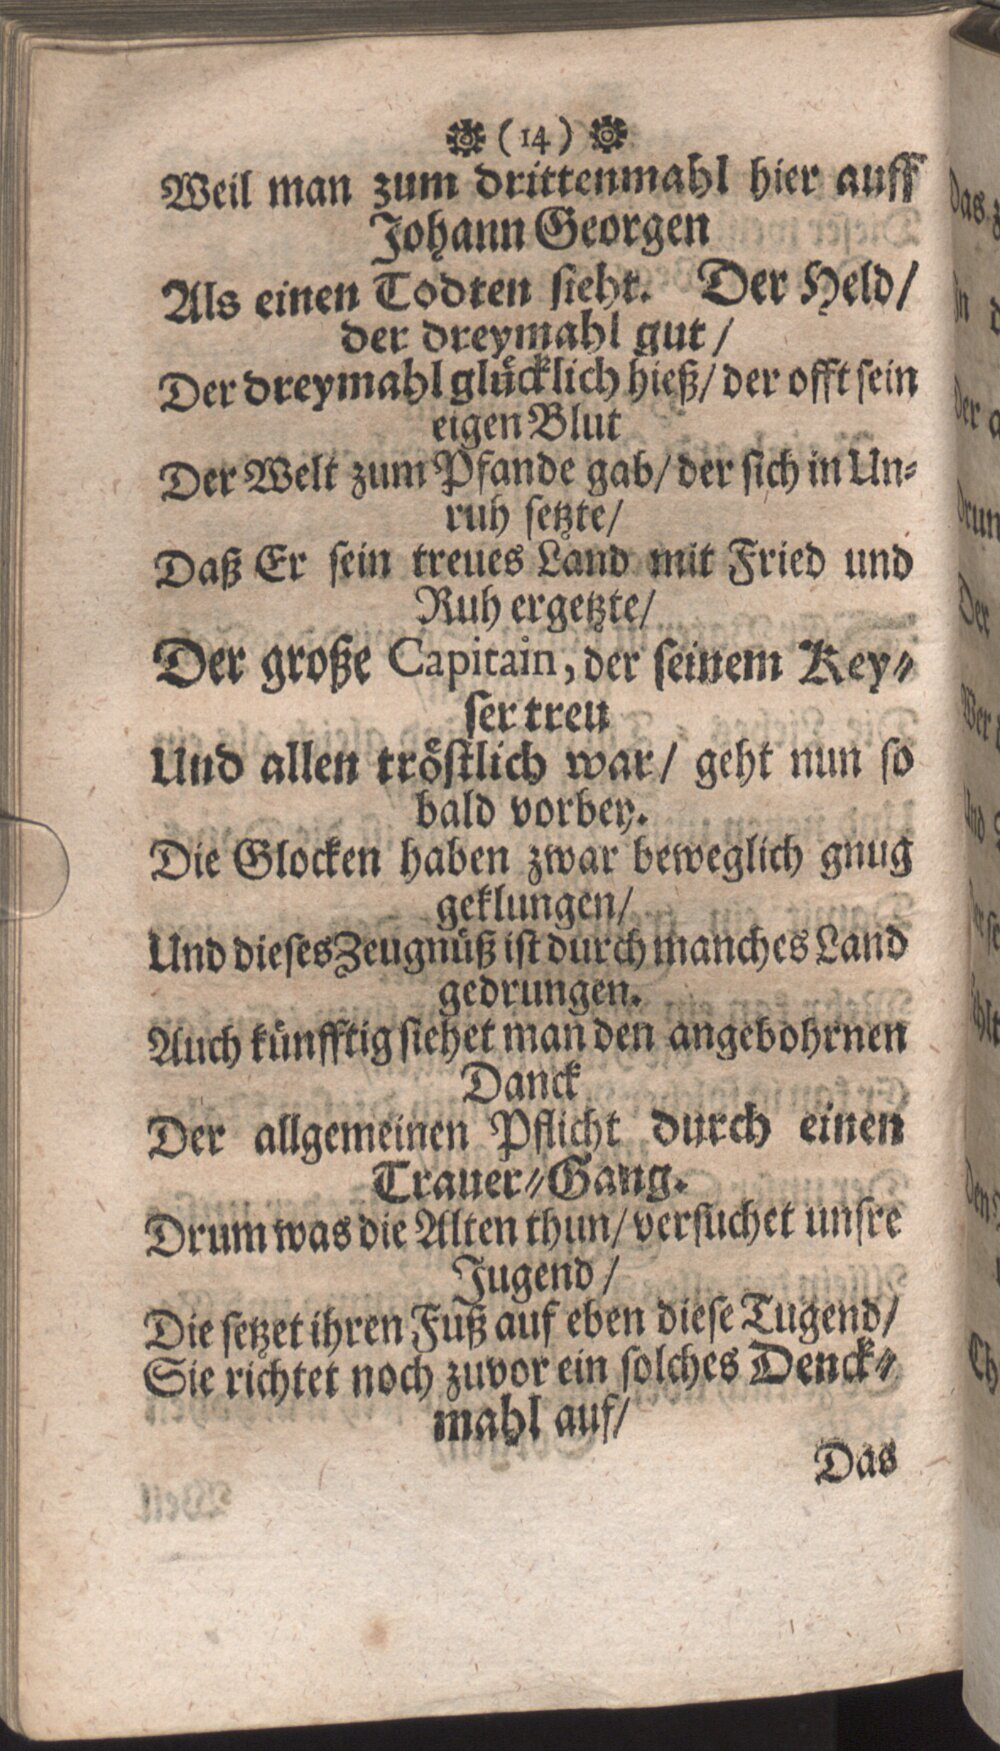 (14)
Weil man zum drittenmahl hier auff
Johann Georgen
Als einen Todten sieht. Der Held/
der dreymahl gut/
Der dreymahl glücklich hieß/ der offt sein
eigen Blut
Der Welt zum Pfande gab/ der sich in Un-
ruh setzte/
Daß Er sein treues Land mit Fried und
Ruh ergetzte/
Der große Capitain, der seinem Key-
ser treu
Und allen tröstlich war/ geht nun so
bald vorbey.
Die Glocken haben zwar beweglich gnug
geklungen/
Und dieses Zeugnüß ist durch manches Land
gedrungen.
Auch künfftig siehet man den angebohrnen
Danck
Der allgemeinen Pflicht durch einen
Trauer-Gang.
Drum was die Alten thun/ versuchet unsre
Jugend/
Die setzet ihren Fuß auf eben diese Tugend/
Sie richtet noch zuvor ein solches Denck-
mahl auf/
Das